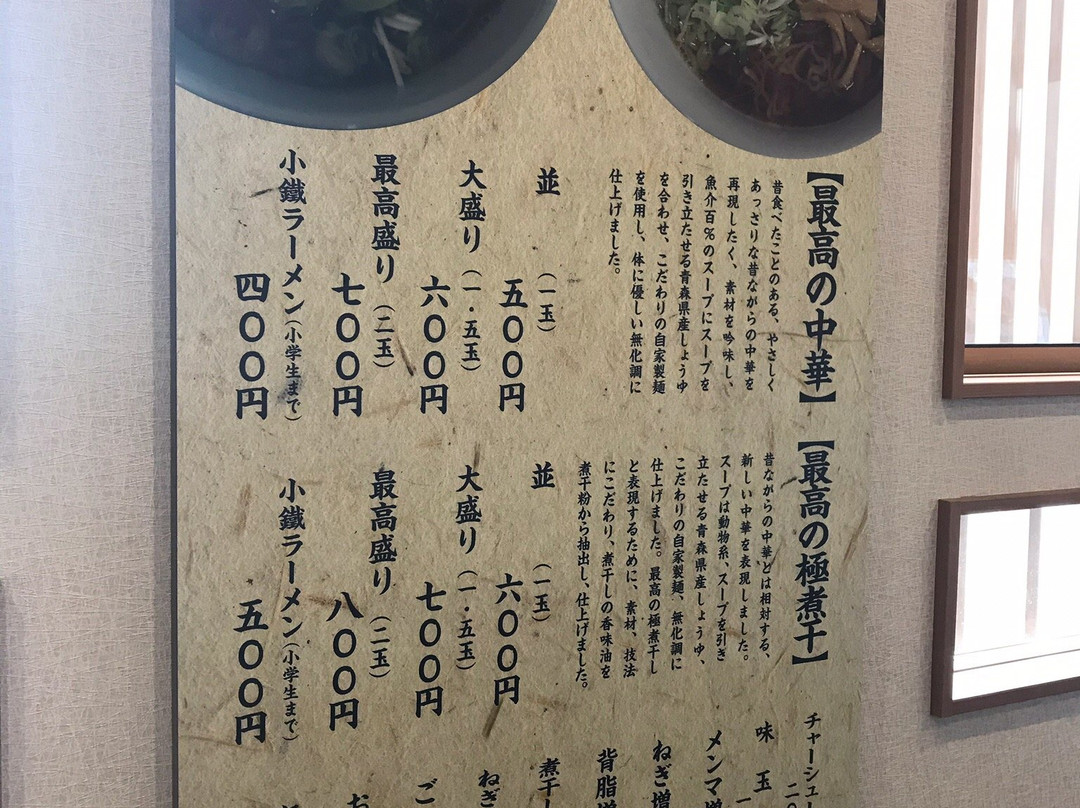 【最高の中華】
昔食べたことのある、やさしく
あっさりな昔ながらの中華を
再現したく、素材を吟味し、
魚介百%のスープにスープを
引き立たせる青森県産しょうゆ
を合わせ、こだわりの自家製麺
を使用し、体に優しい無化調に
仕上げました。
並(一玉)
五〇〇円
大盛り(一・五玉)
六〇〇円
最高盛り(二玉)
七〇〇円
小鐵ラーメン(小学生まで)
四〇〇円
【最高の極煮干】
昔ながらの中華とは相対する、
新しい中華を表現しました。
スープは動物系、スープを引き
立たせる青森県産しょう中、
こだわりの自家製麺、無化調に
仕上げました。最高の極煮干し
と表現するために、素材、技法
にこだわり、煮干しの香味油を
煮干粉から抽出し、仕上げました。
並(一玉)
六〇〇円
大盛り(一・五玉)
七〇〇円
最高盛り(二玉)
八〇〇円
小鐵ラーメン(小学生まで)
五〇〇円
チャーシュー
味玉
メンマ増
ねぎ増
背脂増
煮干し
ねぎ
ご
お